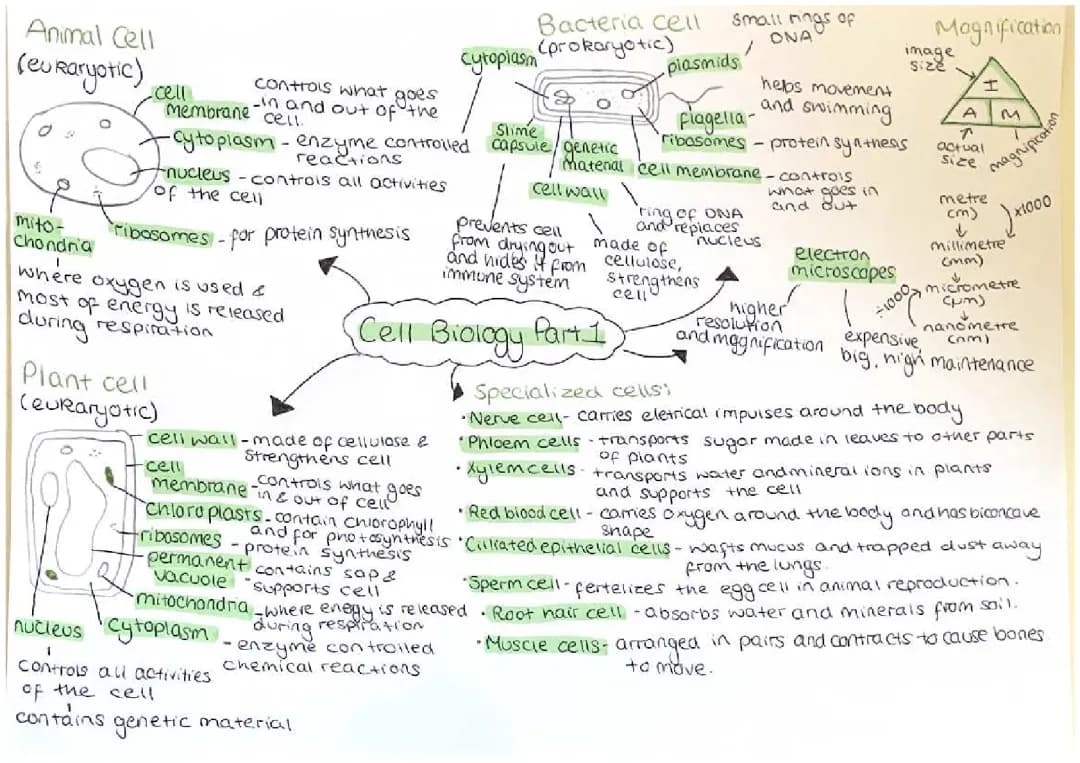 Animal Cell
(eukaryotic)
cell
membrane - controls what goes
in and out of the
cell.
cytoplasm - enzyme controlled
reactions
nucleus - controls all activities
of the cell
mito-
chondria
ribosomes - for protein synthesis
where oxygen is used &
most of energy is released
during respiration
Bacteria cell
(prokaryotic)
cytoplasm
small rings of
DNA
plasmids
helps movement
and swimming
flagella-
slime
capsule
genetic
material
ribosomes - protein synthesis
cell membrane - controls
what goes in
and out
cell wall
prevents cell
from drying out
and hides it from
immune system
made of
cellulose,
strengthens
cell
ring of DNA
and replaces
nucleus
Magnification
image
size
I
A M
actual
size
magnification
metre
(m)
x1000
millimetre
(mm)
micrometre
(μm)
÷1000
nanometre
(nm)
electron
microscopes
higher
resolution
and magnification
expensive,
big, high maintenance
Cell Biology Part 1
Plant cell
(eukaryotic)
cell wall - made of cellulose &
strengthens cell
cell
membrane - controls what goes
in & out of cell
chloroplasts - contain chlorophyll
and for photosynthesis
ribosomes - protein synthesis
permanent
vacuole - contains sap &
supports cell
mitochondria - where enegy is released
during respiration
nucleus
cytoplasm - enzyme controlled
chemical reactions
controls all activities
of the cell
contains genetic material
Specialized cells:
• Nerve cell - carries eletrical impulses around the body
• Phloem cells - transports sugar made in leaves to other parts
of plants
• Xylem cells - transports water and mineral ions in plants
and supports the cell
• Red blood cell - carries oxygen around the body and has biconcave
shape
• Cilitated epithelial cells - wafts mucus and trapped dust away
from the lungs.
• Sperm cell - fertelizes the egg cell in animal reproduction.
• Root hair cell - absorbs water and minerals from soil.
• Muscle cells - arranged in pairs and contracts to cause bones
to move.